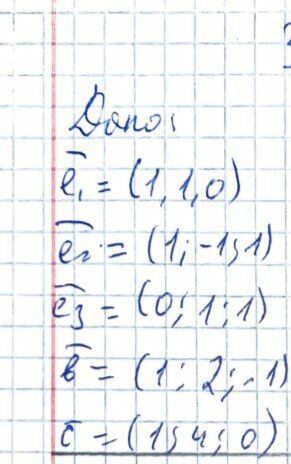 Дано:
e̅₁ = (1, 1, 0)
e̅₂ = (1; -1; 1)
e̅₃ = (0; 1; 1)
b̅ = (1; 2; -1)
c̅ = (1; 4; 0)